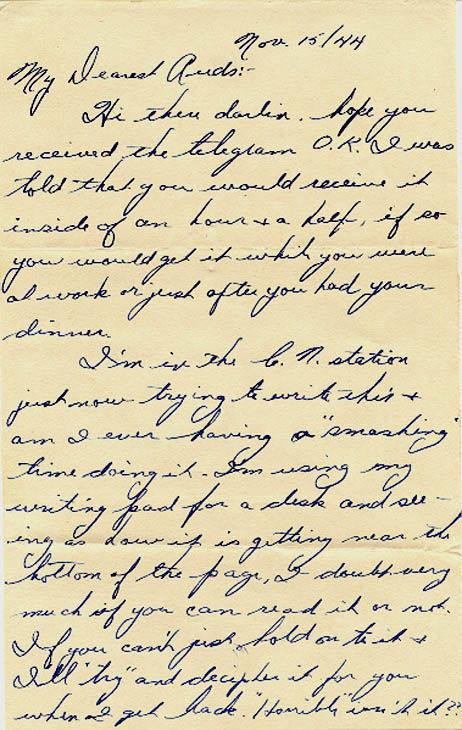 Nov. 15/44
My Dearest Auds:-
Hi there darlin, hope you
received the telegram O.K. I was
told that you would receive it
inside of an hour & a half, if so
you would get it whih you were
at work or just after you had your
dinner.
I'm in the C. N. station
just now trying to write this &
am I ever having a "smashing"
time doing it. I'm using my
writing pad for a desk and see-
ing as how it is getting near the
bottom of the page, I doubt very
much if you can read it or not.
If you can't just hold on to it &
I'll "try" and decipher it for you
when I get back. "Horrible" isn't it??